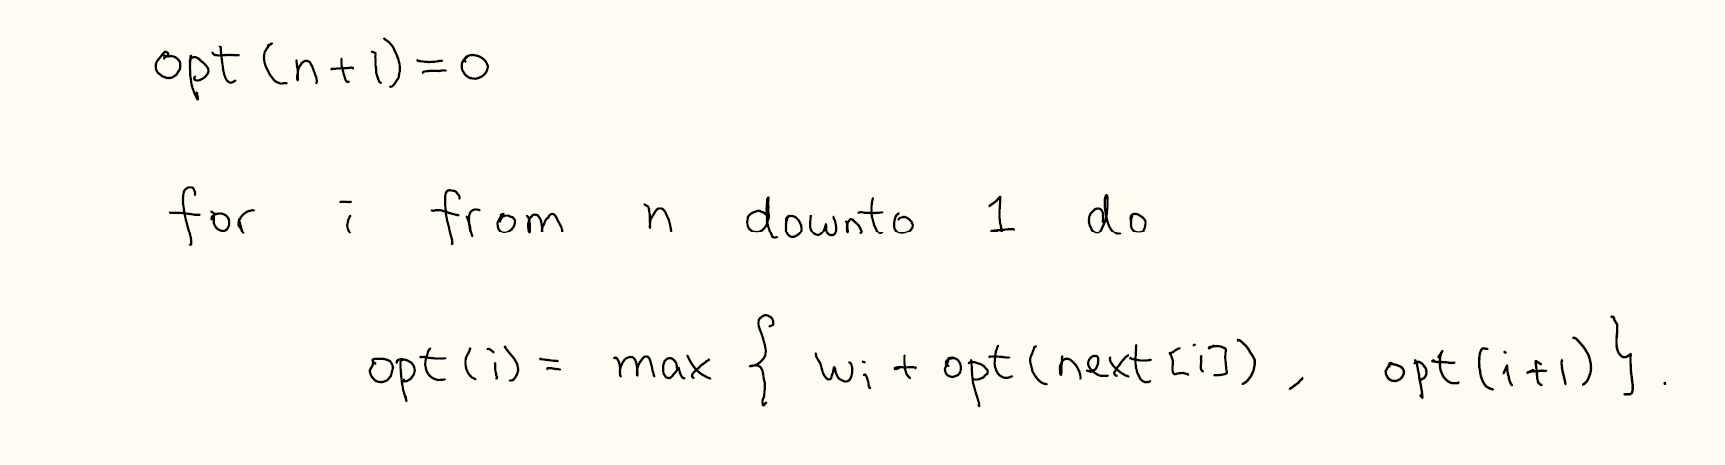 opt (n+1)=0
for i from n downto 1 do
opt(i) = max { wi + opt(next[i]) , opt(i+1)}.